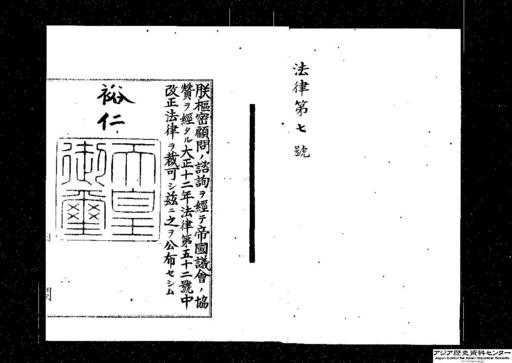 法律第七號
朕樞密顧問ノ諮詢ヲ經テ帝國議會ノ協
贊ヲ經タル大正十二年法律第五十二號中
改正法律ヲ裁可シ茲ニ之ヲ公布セシム
裕仁
天皇
御璽
アジア歴史資料センター
Japan Center for Asian Historical Records